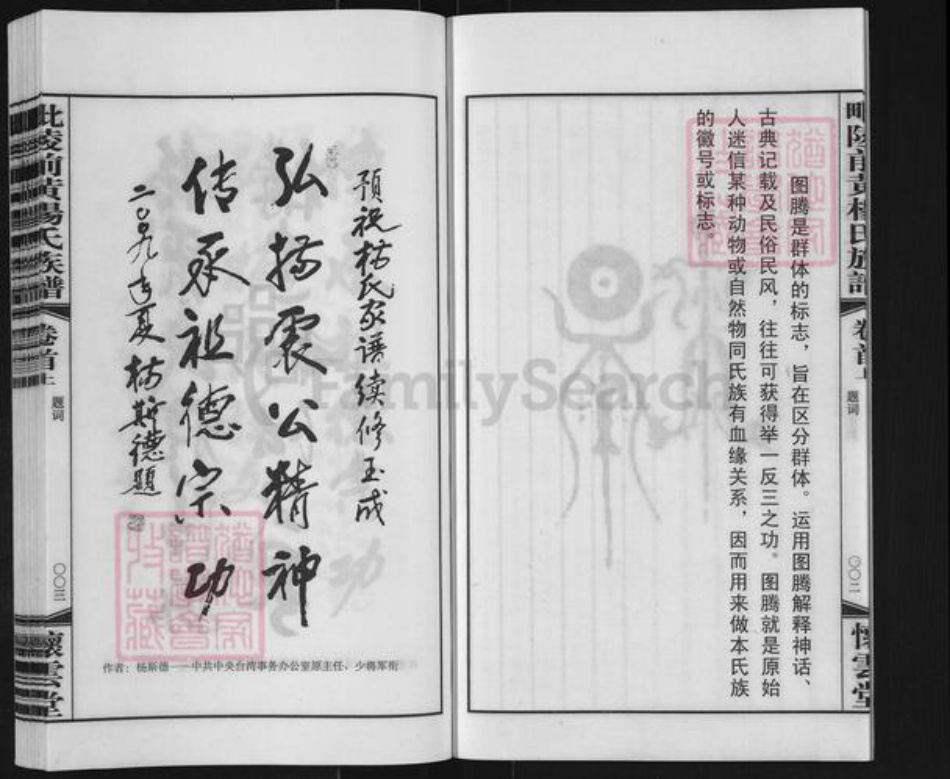 毗陵前黄楊氏族譜
卷首上
题词
〇〇二
懷雲堂
图腾是群体的标志，旨在区分群体。运用图腾解释神话、
古典记载及民俗民风，往往可获得举一反三之功。图腾就是原始
人迷信某种动物或自然物同氏族有血缘关系，因而用来做本氏族
的徽号或标志。
预祝杨氏家谱续修玉成
弘扬震公精神
传承祖德宗功
二〇〇九年夏杨斯德题
作者：杨斯德——中共中央台湾事务办公室原主任、少将军衔
毗陵前黄楊氏族譜
卷首上
题词
〇〇三
懷雲堂
FamilySearch